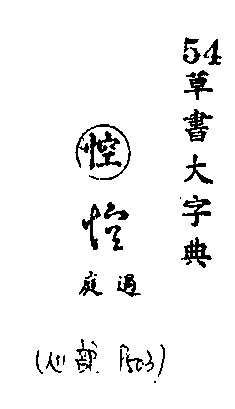 54草書大字典
悾
悾
過庭
(心部 P503)